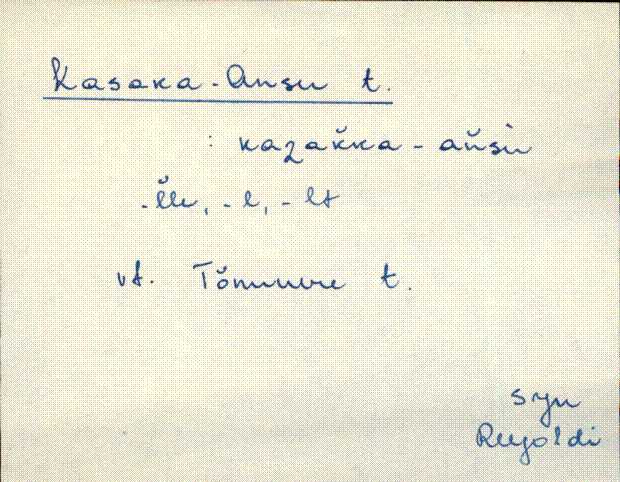 Kasaka-Ansu t.
: kazak̆ka - ańsu
-l̆le, -l, -lt
vt. Tõnuvere t.
syn
Reegoldi